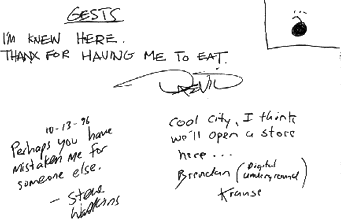 GESTS
I'M KNEW HERE.
THANX FOR HAVING ME TO EAT.
DEVIL
10-13-96
Perhaps you have
mistaken me for
someone else.
— Steve
Watkins
Cool city, I think
we'll open a store
here...
Brendan (Digital underground)
Krause